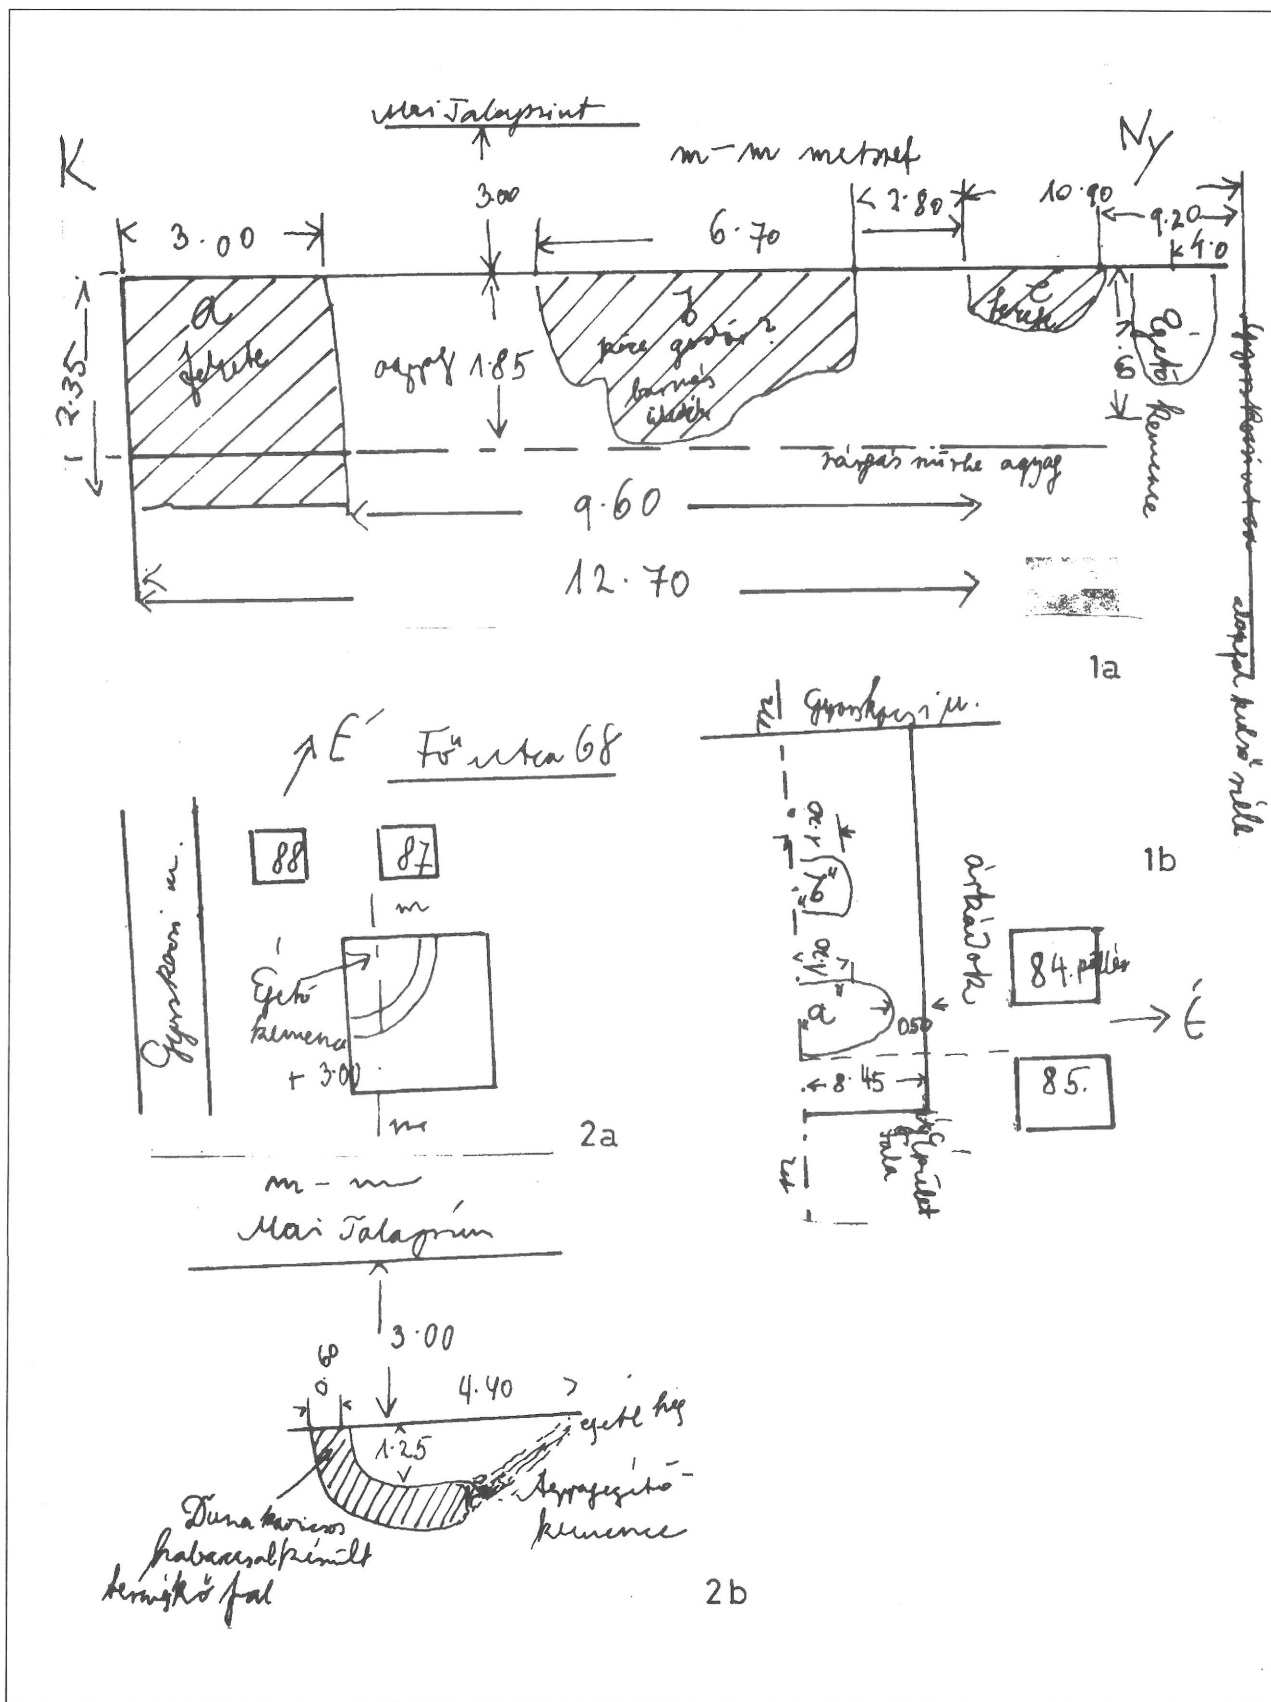 K
Mai Talajszint
m-m metszet
Ny
3.00
3.00
6.70
2.80
10.90
9.20
4.0
a
fekete
2.35
agyag
1.85
b
gödör?
barnás
c
fekete
Égető kemence
sárgás szürke agyag
9.60
12.70
alapfal külső széle
1a
É
Fő utca 68
Gyorskocsi u.
88
87
m
Égető
kemence
+ 3.00
m
2a
m
Gyorskocsi u.
1.20
"b"
1.20
"a"
0.50
8.45
árkádok
84. pillér
85.
É
Épület
fala
m
1b
m-m
Mai Talajszint
3.00
0.60
4.40
1.25
égetett
Agyagégető-
kemence
Duna kavicsos
habarcsal készült
terméskő fal
2b